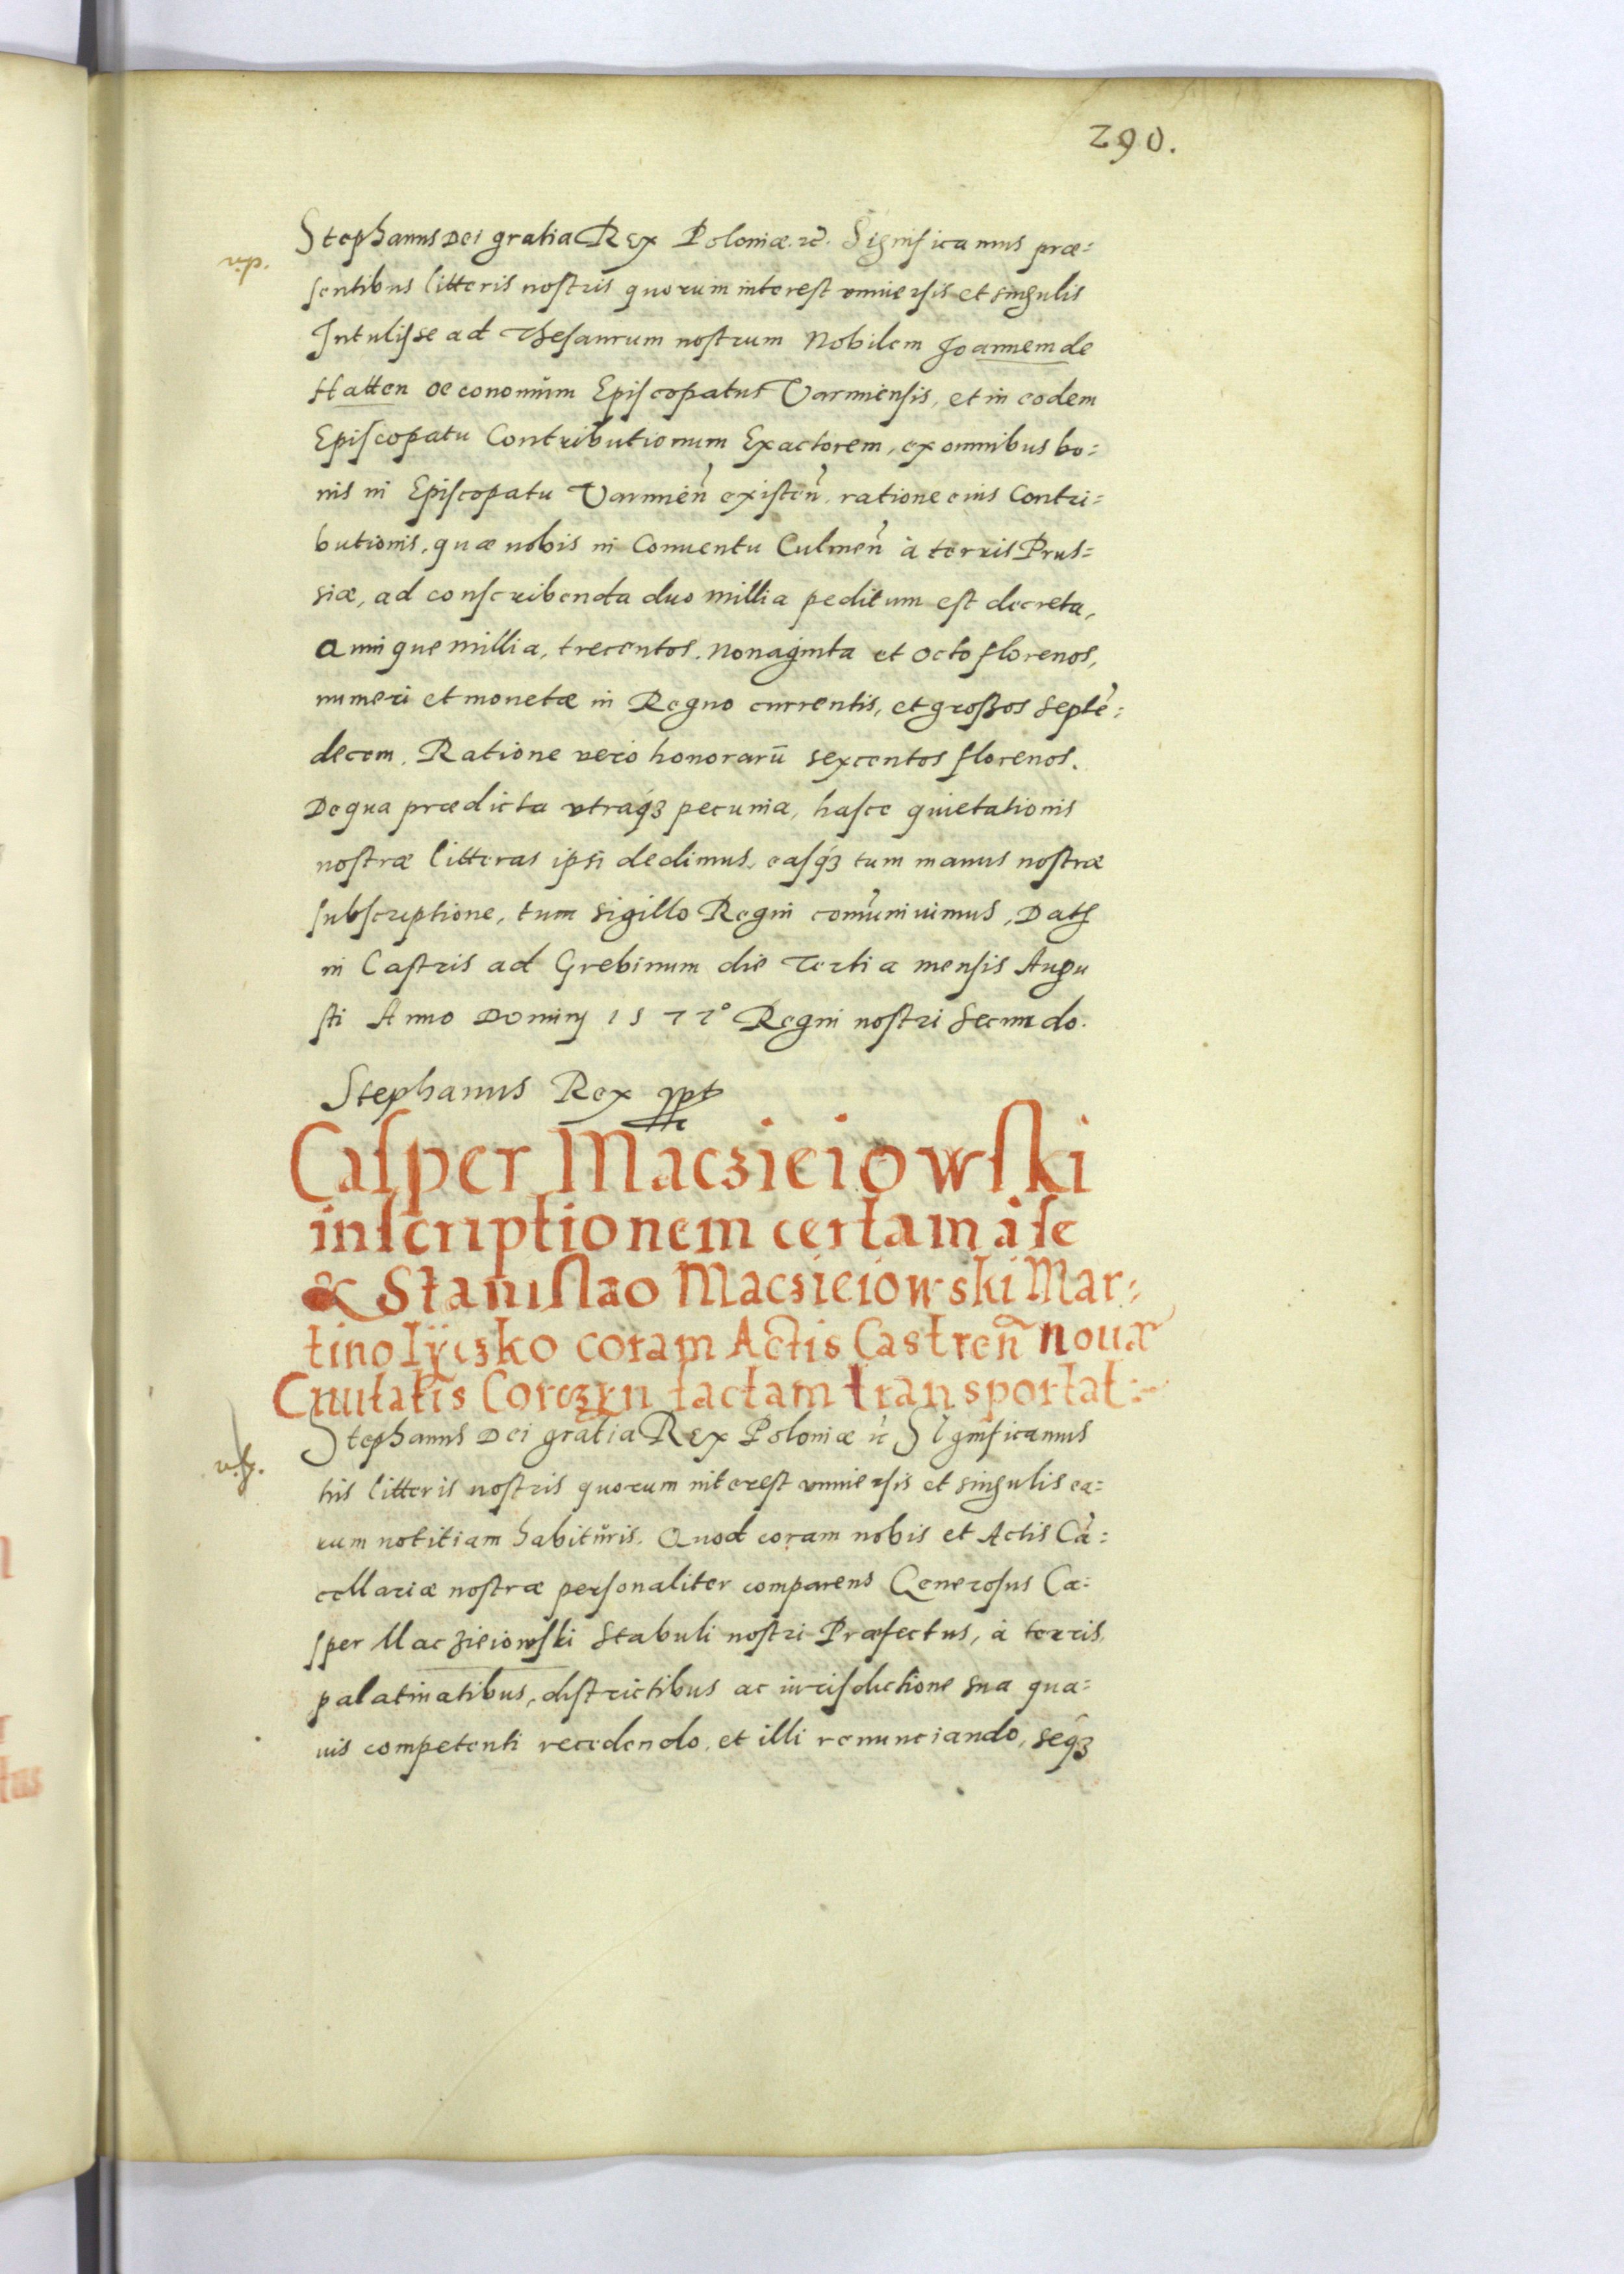 290.
Stephanus Dei gratia Rex Poloniæ. &c. Significamus præ=
sentibus litteris nostris quorum interest vniuersis et singulis
Intulisse ad Thesaurum nostrum Nobilem Joannem de
Hatten oeconomum Episcopatus Varmiensis, et in eodem
Episcopatu Contributionum Exactorem, ex omnibus bo=
nis in Episcopatu Varmień existeń, ratione eius Contri=
butionis, quæ nobis in Conuentu Culmeń à terris Prus=
siæ, ad conscribenda duo millia peditum est decreta,
Quinque millia, trecentos, nonaginta et octo florenos,
numeri et monetæ in Regno currentis, et grossos septē=
decem. Ratione vero honorarū sexcentos florenos.
De qua prædicta vtraqꝫ pecunia, hasce quietationis
nostræ litteras ipsi dedimus, easqꝫ tum manus nostræ
subscriptione, tum sigillo Regni com̄uniuimus, Dat
in Castris ad Grebinum die Tertia mensis Augu
sti Anno Dominj 1577° Regni nostri Secundo.
Stephanus Rex sspt
Casper Maczieiowski
inscriptionem certam à se
& Stanislao Macsieiowski Mar=
tino Iÿczko coram Actis Castreñ Nouæ
Ciuitatis Corczyn factam transportat:-
Stephanus Dei gratia Rex Poloniæ &c Significamus
his litteris nostris quorum interest vniuersis et singulis ea=
rum notitiam habituris. Quod coram nobis et Actis Cā=
cellariæ nostræ personaliter comparens Generosus Ca=
sper Maczieiowski Stabuli nostri Præfectus, à terris,
palatinatibus, districtibus ac iurisdictione sua qua=
uis competenti recedendo, et illi renunciando, seqꝫ